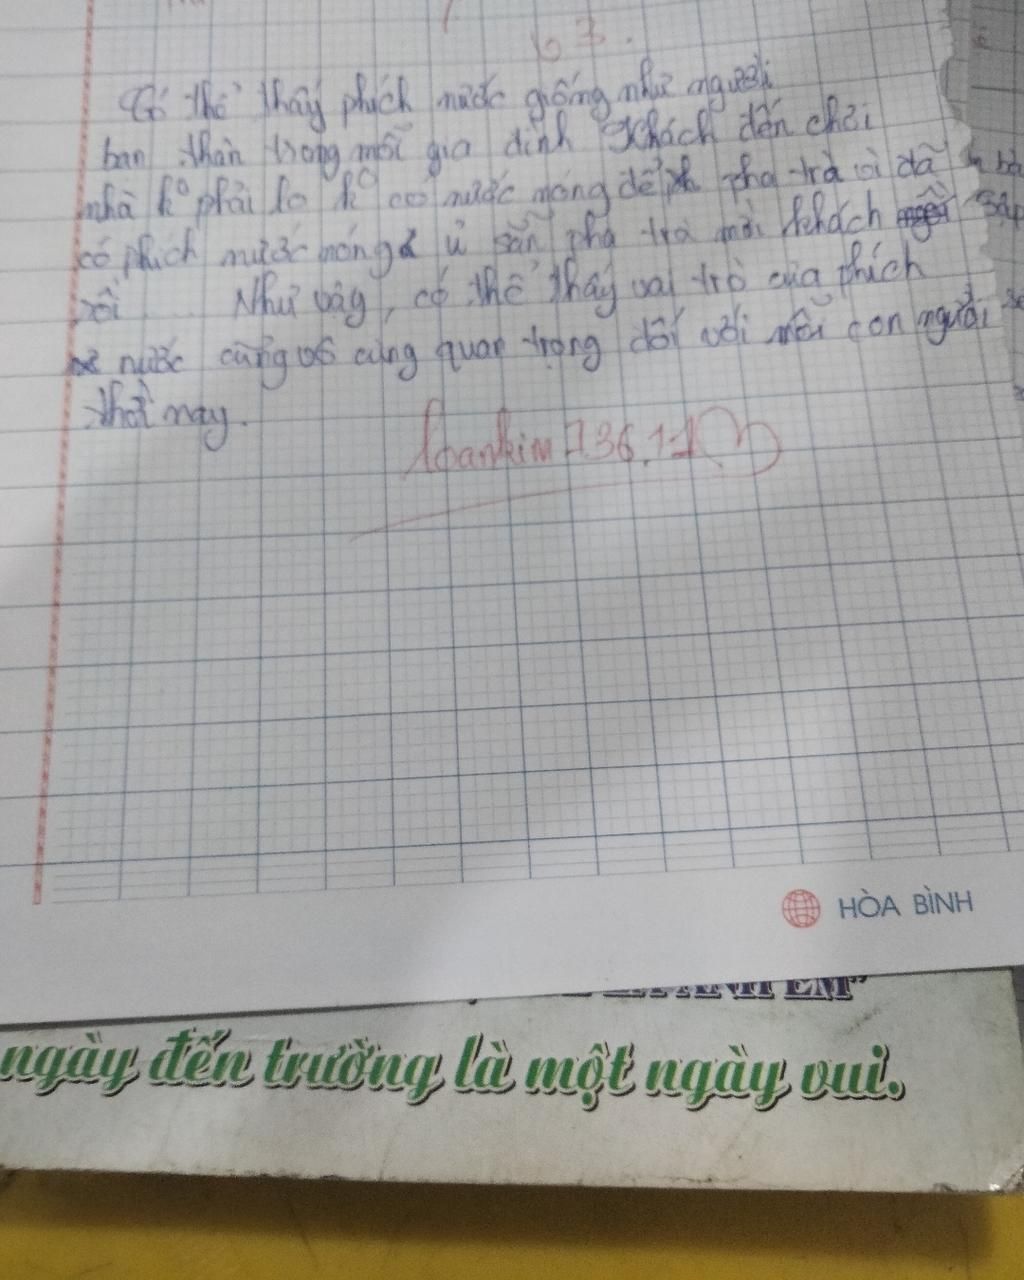 63.
Có thể thấy phích nước giống như người
bạn thân trong mỗi gia đình khách đến chơi
nhà k° phải lo k° có nước nóng để pha trà vì đã
có phích nước nóng ủ sẵn pha trà mời khách
rồi Như vậy, có thể thấy vai trò của phích
nước cũng vô cùng quan trọng đối với mỗi con người
thời nay.
HÒA BÌNH
EM"
ngày đến trường là một ngày vui.